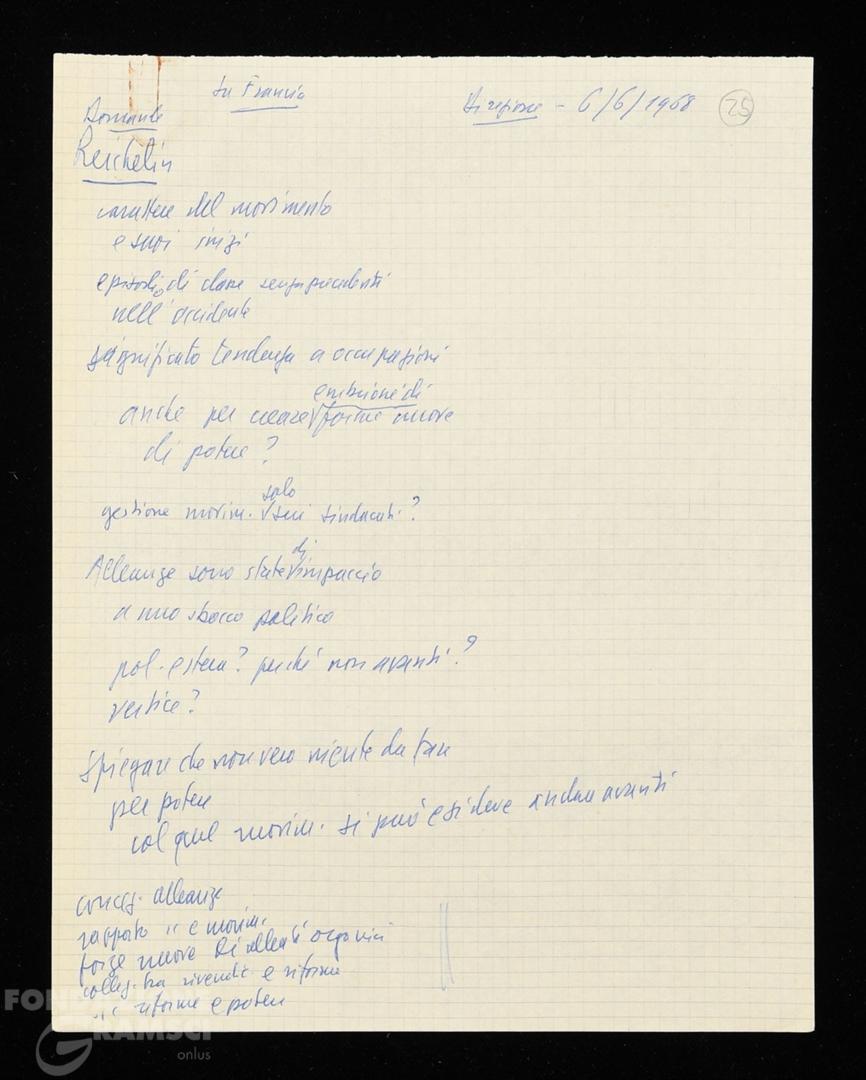 su Francia
Direzione - 6/6/1968 25
Domande
Reichlin
carattere del movimento
e suoi inizi
episodio di classe senza precedenti
nell'occidente
significato tendenza a occupazioni
embrione di
anche per creare forme nuove
di potere?
solo
gestione movim. sui sindacati?
di
Alleanze sono state impaccio
a uno sbocco politico
pol. estera? perché non avanti?
vertice?
Spiegare che non vero niente da fare
per potere
col quel movim. si può e si deve andare avanti
concez. alleanze
rapporto " e movim.
forze nuove di alleati organici
colleg. tra rivendic e riforme
" riforme e potere
FONDAZIONE
GRAMSCI
onlus